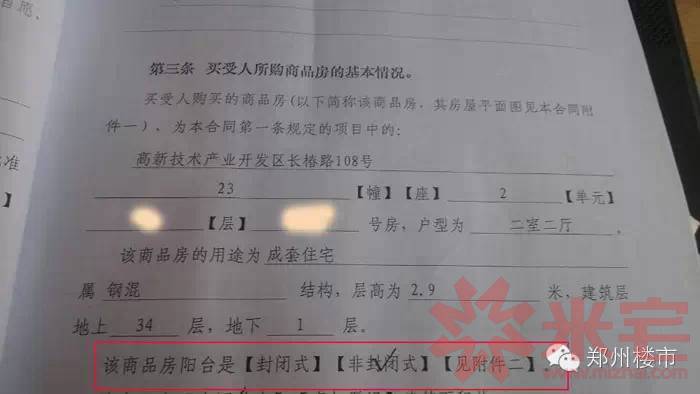 第三条 买受人所购商品房的基本情况。
买受人购买的商品房(以下简称该商品房,其房屋平面图见本合同附
件一),为本合同第一条规定的项目中的:
高新技术产业开发区长椿路108号
23 【幢】【座】 2 【单元】
【层】 号房,户型为 二室二厅 。
该商品房的用途为 成套住宅
属 钢混 结构,层高为 2.9 米,建筑层
地上 34 层,地下 1 层。
该商品房阳台是【封闭式】【非封闭式】【见附件二】。
米宅
www.mizhai.com
郑州楼市